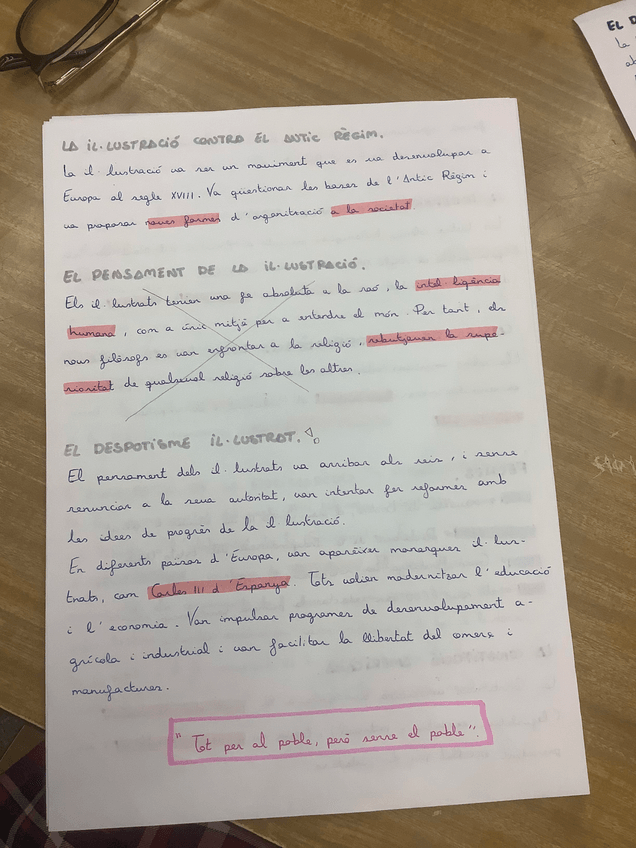 LA IL·LUSTRACIÓ CONTRA EL ANTIC RÈGIM.
La il·lustració va ser un moviment que es va desenvolupar a
Europa al segle XVIII. Va qüestionar les bases de l'Antic Règim i
va proposar noves formes d'organització a la societat.
EL PENSAMENT DE LA IL·LUSTRACIÓ.
Els il·lustrats tenien una fe absoluta a la raó, la intel·ligència
humana, com a únic mitjà per a entendre el món. Per tant, els
nous filòsofs es van enfrontar a la religió, rebutjaven la supe-
rioritat de qualsevol religió sobre les altres.
EL DESPOTISME IL·LUSTRAT.
El pensament dels il·lustrats va arribar als reis, i sense
renunciar a la seua autoritat, van intentar fer reformes amb
les idees de progrès de la il·lustració.
En diferents països d'Europa, van aparèixer monarques il·lus-
trats, com Carles III d'Espanya. Tots volien modernitzar l'educació
i l'economia. Van impulsar programes de desenvolupament a-
grícola i industrial i van facilitar la llibertat del comerç i
manufactures.
"Tot per al poble, però sense el poble".
EL D
la